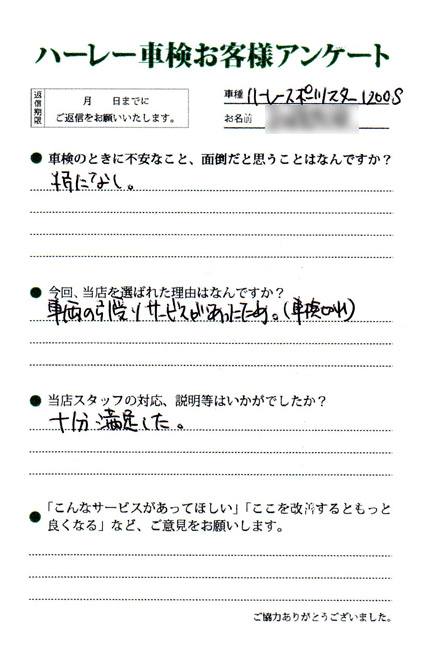 ハーレー車検お客様アンケート
返信期限
月　　日までに
ご返信をお願いいたします。
車種 ハーレースポーツスター1200S
お名前
● 車検のときに不安なこと、面倒だと思うことはなんですか?
特になし。
● 今回、当店を選ばれた理由はなんですか?
車両の引受けサービスがあったため。(車検切れ)
● 当店スタッフの対応、説明等はいかがでしたか?
十分満足した。
● 「こんなサービスがあってほしい」「ここを改善するともっと
良くなる」など、ご意見をお願いします。
ご協力ありがとうございました。